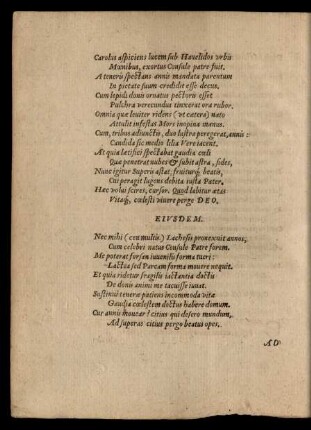 Carolus aspiciens lucem sub Havelidos urbis
Mœnibus, exortus Consule patre fuit.
A teneris spectans annis mandata parentum
In pietate suum credidit esse decus.
Cum lepidi donis ornatus pectoris esset
Pulchra verecundus tinxerat ora rubor.
Omnia quæ leviter ridens (ut cætera) nato
Attulit infestas Mors inopina manus.
Cum, tribus adiunctis, duo lustra peregerat, annis:
Candida sic medio lilia Vere iacent.
At quia lætifici spectabat gaudia cœli
Quæ penetrat nubes & subit astra, fides,
Nunc igitur Superis astat, fruiturq́; beatis,
Cui peragit lugens debita iusta Pater.
Hæc volui scires, cursor. Quod labitur ætas
Vitaq́;, cœlesti vivere perge DEO.
EIUSDEM.
Nec mihi (ceu multis) Lachesis protexuit annos,
Cum celebres natus Consule Patre forem.
Me poterat forsan iuvenilis forma tueri:
Lactea sed Parcam forma movere nequit.
Et quia ridetur fragilis iactantia dactis
De donis animi me tacuisse iuvat.
Sustinui teneræ patiens incommoda vitæ
Gaudia cœlestem doctus habere domum.
Cur annis moveár? citius qui desero mundum,
Ad superas citius pergo beatus opes.
AD